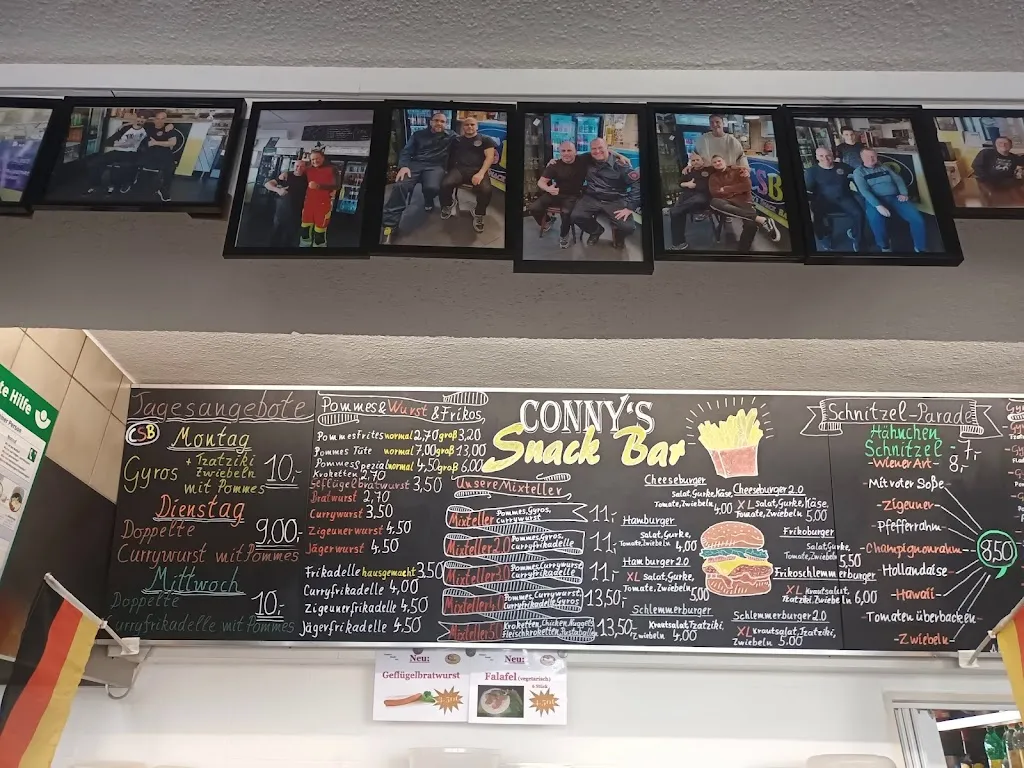 te Hilfe
Tagesangebote
CSB
Montag
Gyros + Tzatziki
Zwiebeln
mit Pommes 10,-
Dienstag
Doppelte 9,00,-
Currywurst mit Pommes
Mittwoch
Doppelte 10,-
urryfrikadelle mit Pommes
Pommes & Wurst & Frikos
Pommes Frites normal 2,70 groß 3,20
Pommes Tüte normal 7,00 groß 13,00
Pommes Spezial normal 4,50 groß 6,00
Kroketten 2,70
Geflügelbratwurst 3,50
Bratwurst 2,70
Currywurst 3,50
Zigeunerwurst 4,50
Jägerwurst 4,50
Frikadelle hausgemacht 3,50
Curryfrikadelle 4,00
Zigeunerfrikadelle 4,50
Jägerfrikadelle 4,50
CONNY'S
Snack Bar
Unsere Mixteller
Mixteller Pommes, Gyros,
Currywurst 11,-
Mixteller 2.0 Pommes, Gyros,
Curryfrikadelle 11,-
Mixteller 3.0 Pommes, Currywurst
Curryfrikadelle 11,-
Mixteller 4.0 Pommes, Currywurst,
Curryfrikadelle, Gyros 13,50,-
Mixteller 5.0 Kroketten, Chicken Nuggets
Fleischkroketten 13,50,-
Cheeseburger
Salat, Gurke, Käse,
Tomate, Zwiebeln 4,00
Hamburger
Salat, Gurke,
Tomate, Zwiebeln 4,00
Hamburger 2.0
XL Salat, Gurke,
Tomate, Zwiebeln 5,00
Schlemmerburger
Krautsalat, Tzatziki,
Zwiebeln 4,00
Cheeseburger 2.0
XL Salat, Gurke, Käse,
Tomate, Zwiebeln 5,00
Frikoburger
Salat, Gurke,
Tomate, Zwiebeln 5,50
Frikoschlemmerburger
XL Krautsalat,
Tzatziki, Zwiebeln 6,00
Schlemmerburger 2.0
XL Krautsalat, Tzatziki,
Zwiebeln 5,00
Schnitzel-Parade
Hähnchen
Schnitzel 7,-
-Wiener Art- 8,-
-Mit roter Soße
-Zigeuner
-Pfefferrahm
-Championrahm-
-Hollandaise
-Hawaii
-Tomaten überbacken
-Zwiebeln
8,50
Neu:
Geflügelbratwurst
3,50
Neu:
Falafel (vegetarisch)
CSB